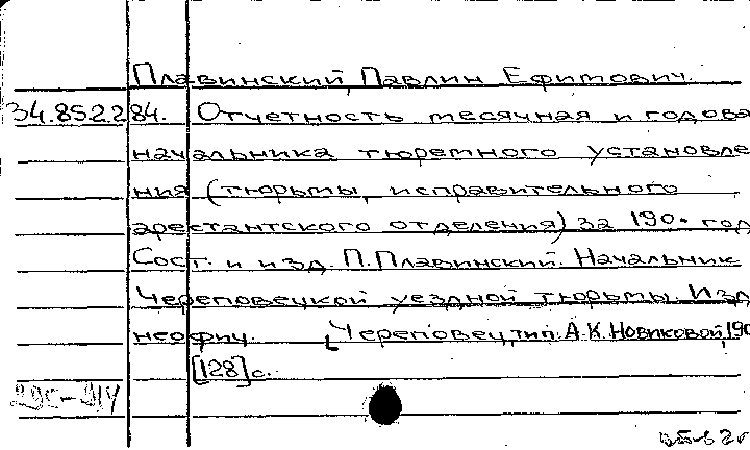 Плавинский, Павлин Ефимович.
34.852.284. Отчетность месячная и годова
начальника тюремного установле
ния (тюрьмы, исправительного
арестантского отделения) за 190. год
Сост. и изд. П. Плавинский. Начальник
Череповецкой уездной тюрьмы. Изд.
неофиц. [Череповец, тип. А.К. Новиковой, 190
[128] с.